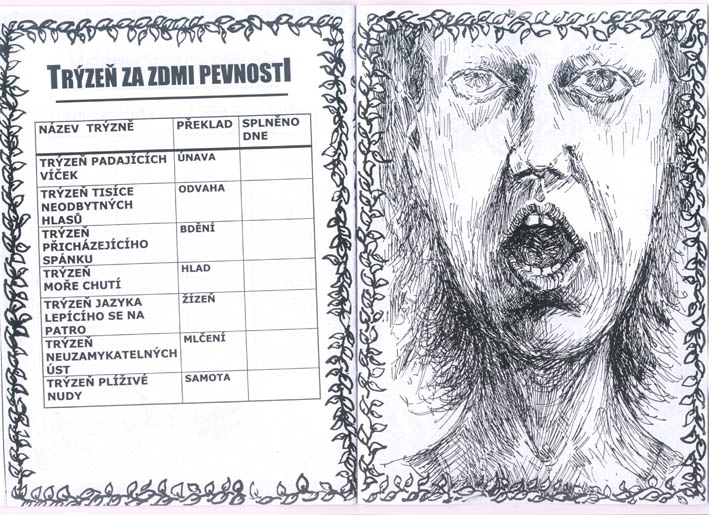 TRÝZEŇ ZA ZDMI PEVNOSTI
NÁZEV TRÝZNĚ PŘEKLAD SPLNĚNO
DNE
TRÝZEŇ PADAJÍCÍCH ÚNAVA
VÍČEK
TRÝZEŇ TISÍCE ODVAHA
NEODBYTNÝCH
HLASŮ
TRÝZEŇ BDĚNÍ
PŘICHÁZEJÍCÍHO
SPÁNKU
TRÝZEŇ HLAD
MOŘE CHUTÍ
TRÝZEŇ JAZYKA ŽÍZEŇ
LEPÍCÍHO SE NA
PATRO
TRÝZEŇ MLČENÍ
NEUZAMYKATELNÝCH
ÚST
TRÝZEŇ PLÍŽIVÉ SAMOTA
NUDY